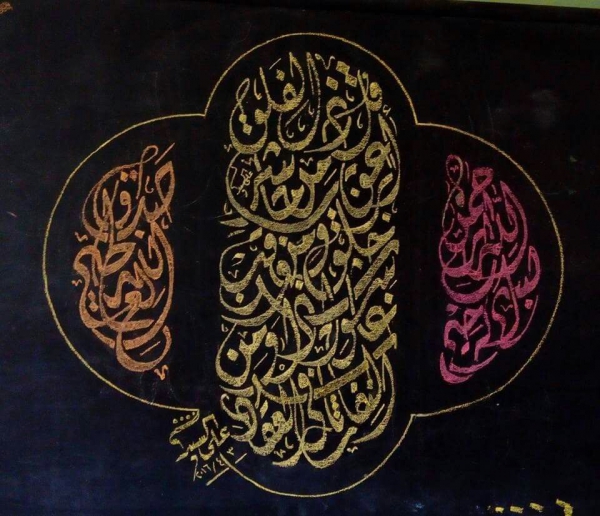 بسم الله الرحمن الرحيم
قل أعوذ برب الفلق
من شر ما خلق
ومن شر غاسق إذا وقب
ومن شر النفاثات في العقد
صدق الله العلي العظيم
علي
٢٠١٦/٤/٣